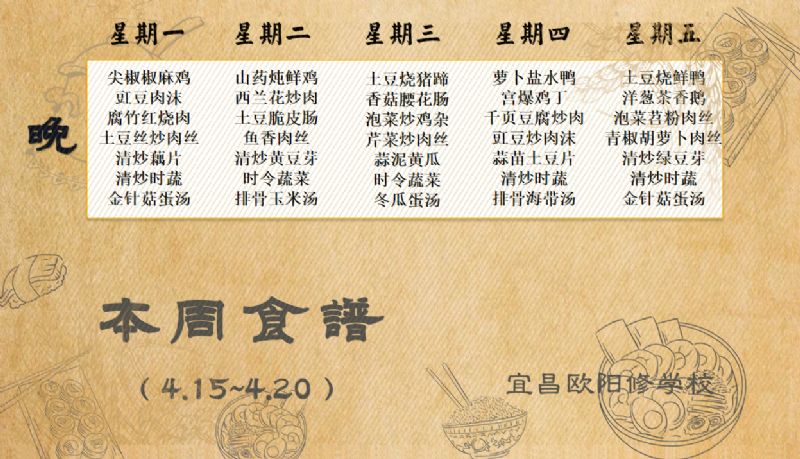 星期一 星期二 星期三 星期四 星期五
晚
尖椒椒麻鸡 山药炖鲜鸡 土豆烧猪蹄 萝卜盐水鸭 土豆烧鲜鸭
豇豆肉沫 西兰花炒肉 香菇腰花肠 宫爆鸡丁 洋葱茶香鹅
腐竹红烧肉 土豆脆皮肠 泡菜炒鸡杂 千页豆腐炒肉 泡菜苕粉肉丝
土豆丝炒肉丝 鱼香肉丝 芹菜炒肉丝 豇豆炒肉沫 青椒胡萝卜肉丝
清炒藕片 清炒黄豆芽 蒜泥黄瓜 蒜苗土豆片 清炒绿豆芽
清炒时蔬 时令蔬菜 时令蔬菜 清炒时蔬 清炒时蔬
金针菇蛋汤 排骨玉米汤 冬瓜蛋汤 排骨海带汤 金针菇蛋汤
本周食譜
（4.15~4.20）
宜昌欧阳修学校